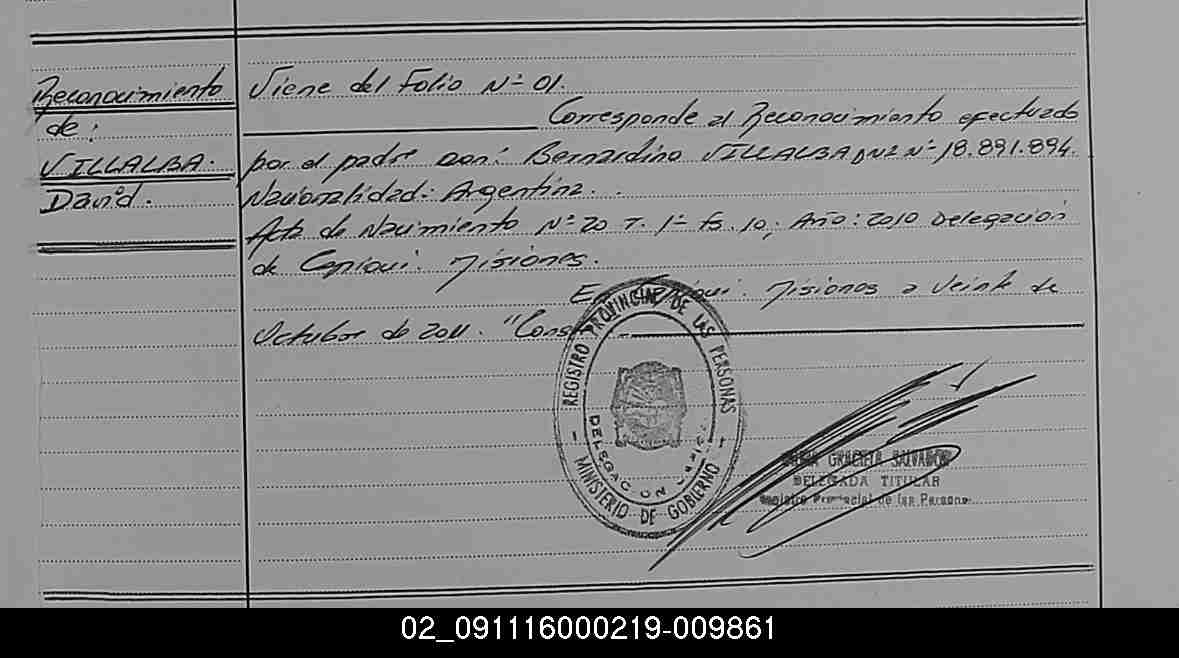 Reconocimiento
de:
VILLALBA.
David.
Viene del Folio Nº 01.
Corresponde al Reconocimiento efectuado
por el padre Don: Bernardino VILLALBA DNI Nº 18.891.894.
Nacionalidad: Argentina.
Acta de Nacimiento Nº 20 T. 1º fs. 10; Año: 2010 Delegación
de Capiovi. Misiones.
En Capiovi. Misiones a veinte de
Octubre de 2011. "Conste
REGISTRO PROVINCIAL DE LAS PERSONAS
DELEGACION
- MINISTERIO DE GOBIERNO -
GRACIELA SALVADOR
DELEGADA TITULAR
Registro Provincial de las Persona
02_091116000219-009861